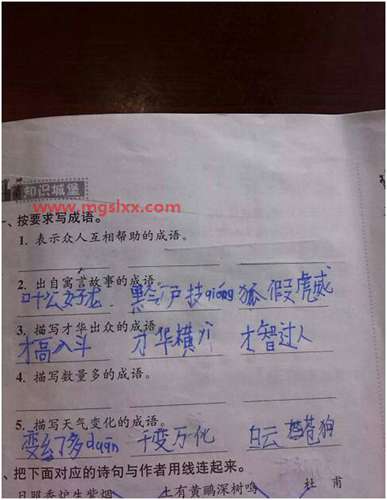 知识城堡
www.mgslxx.com
一、按要求写成语。
1. 表示众人互相帮助的成语。
2. 出自寓言故事的成语。
叶公好龙 黔驴技qióng 狐假虎威
3. 描写才华出众的成语。
才高八斗 才华横 才智过人
4. 描写数量多的成语。
5. 描写天气变化的成语。
变幻多duān 千变万化 白云 苍狗
、把下面对应的诗句与作者用线连起来。
日照香炉生紫烟 上有黄鹂深树鸣 杜 甫